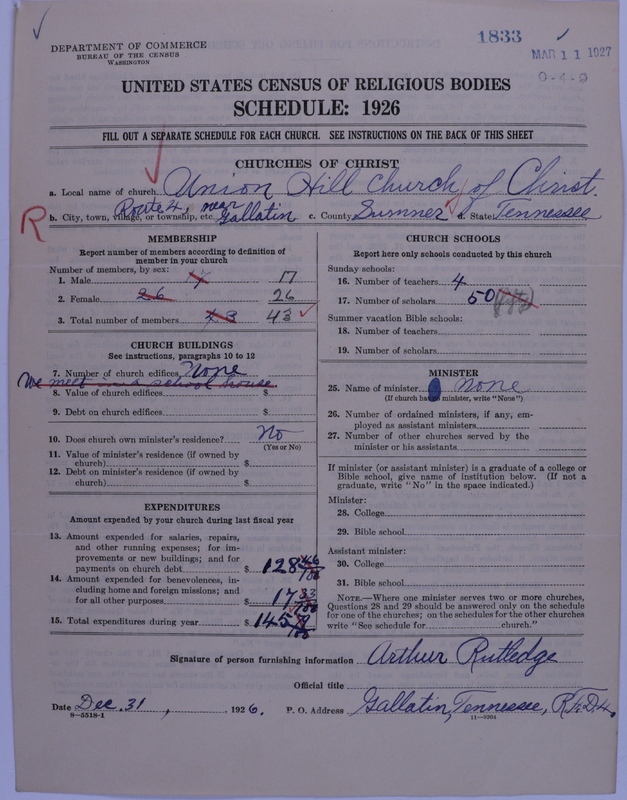 1833
MAR 11 1927
0-4-9
DEPARTMENT OF COMMERCE
BUREAU OF THE CENSUS
WASHINGTON
UNITED STATES CENSUS OF RELIGIOUS BODIES
SCHEDULE: 1926
FILL OUT A SEPARATE SCHEDULE FOR EACH CHURCH. SEE INSTRUCTIONS ON THE BACK OF THIS SHEET
CHURCHES OF CHRIST
a. Local name of church Union Hill Church of Christ.
R
b. City, town, village, or township, etc. Route 4, near Gallatin c. County Sumner d. State Tennessee
MEMBERSHIP
Report number of members according to definition of
member in your church
Number of members, by sex:
1. Male 17
2. Female 26 26
3. Total number of members 43
CHURCH BUILDINGS
See instructions, paragraphs 10 to 12
7. Number of church edifices None
We meet in a school house
8. Value of church edifices $
9. Debt on church edifices $
10. Does church own minister's residence? No
(Yes or No)
11. Value of minister's residence (if owned by
church) $
12. Debt on minister's residence (if owned by
church) $
EXPENDITURES
Amount expended by your church during last fiscal year
13. Amount expended for salaries, repairs,
and other running expenses; for im-
provements or new buildings; and for
payments on church debt $ 128 46/100
14. Amount expended for benevolences, in-
cluding home and foreign missions; and
for all other purposes $ 17 33/100
15. Total expenditures during year $ 145 79/100
CHURCH SCHOOLS
Report here only schools conducted by this church
Sunday schools:
16. Number of teachers 4
17. Number of scholars 50
Summer vacation Bible schools:
18. Number of teachers
19. Number of scholars
MINISTER
25. Name of minister none
(If church has no minister, write "None")
26. Number of ordained ministers, if any, em-
ployed as assistant ministers
27. Number of other churches served by the
minister or his assistants
If minister (or assistant minister) is a graduate of a college or
Bible school, give name of institution below. (If not a
graduate, write "No" in the space indicated.)
Minister:
28. College
29. Bible school
Assistant minister:
30. College
31. Bible school
NOTE.—Where one minister serves two or more churches,
Questions 28 and 29 should be answered only on the schedule
for one of the churches; on the schedules for the other churches
write "See schedule for church."
Signature of person furnishing information Arthur Rutledge
Official title
Date Dec. 31, 1926. P. O. Address Gallatin, Tennessee, R.F.D.4.
8—5518-1
11—9204